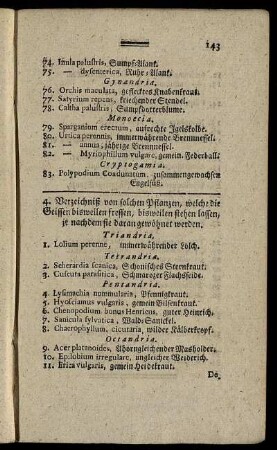 143
74. Inula palustris, Sumpf-Alant.
75. — dysenterica, Ruhr-Alant.
Gynandria.
76. Orchis maculata, geflecktes Knabenkraut.
77. Satyrium repens, kriechender Stendel.
78. Caltha palustris, Sumpfdotterblume.
Monoecia.
79. Sparganium erectum, aufrechte Igelskolbe.
80. Urtica perennis, immerwährende Brennnessel.
81. — annua, jährige Brennnessel.
82. — Myriophillum vulgare, gemein. Federball.
Cryptogamia.
83. Polypodium Coadunatum, zusammengewachsen
Engelsüß.
4. Verzeichniß von solchen Pflanzen, welche die
Geissen bisweilen fressen, bisweilen stehen lassen,
je nachdem sie daran gewöhnet werden.
Triandria.
1. Lolium perenne, immerwährender Lolch.
Tetrandria.
2. Scherardia scanica, Schonisches Sternkraut.
3. Cuscuta parasitica, Schmarozer Flachsseide.
Pentandria.
4. Lysimachia nummularia, Pfennigkraut.
5. Hyosciamus vulgaris, gemein Bilsenkraut.
6. Chenopodium bonus Henricus, guter Heinrich.
7. Sanicula sylvatica, Wald-Sanickel.
8. Chaerophyllum, cicutaria, wilder Kälberkropf.
Octandria.
9. Acer platanoides, Ahorngleichender Masholder.
10. Epilobium irregulare, ungleicher Weiderich.
11. Erica vulgaris, gemein Heidekraut.
De-